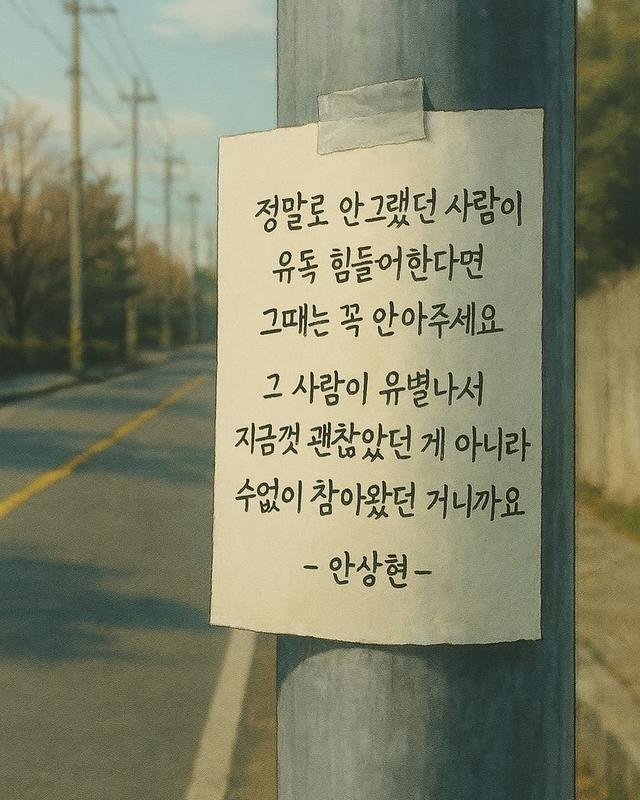 정말로 안그랬던 사람이
유독 힘들어한다면
그때는 꼭 안아주세요
그 사람이 유별나서
지금껏 괜찮았던 게 아니라
수없이 참아왔던 거니까요
- 안상현 -